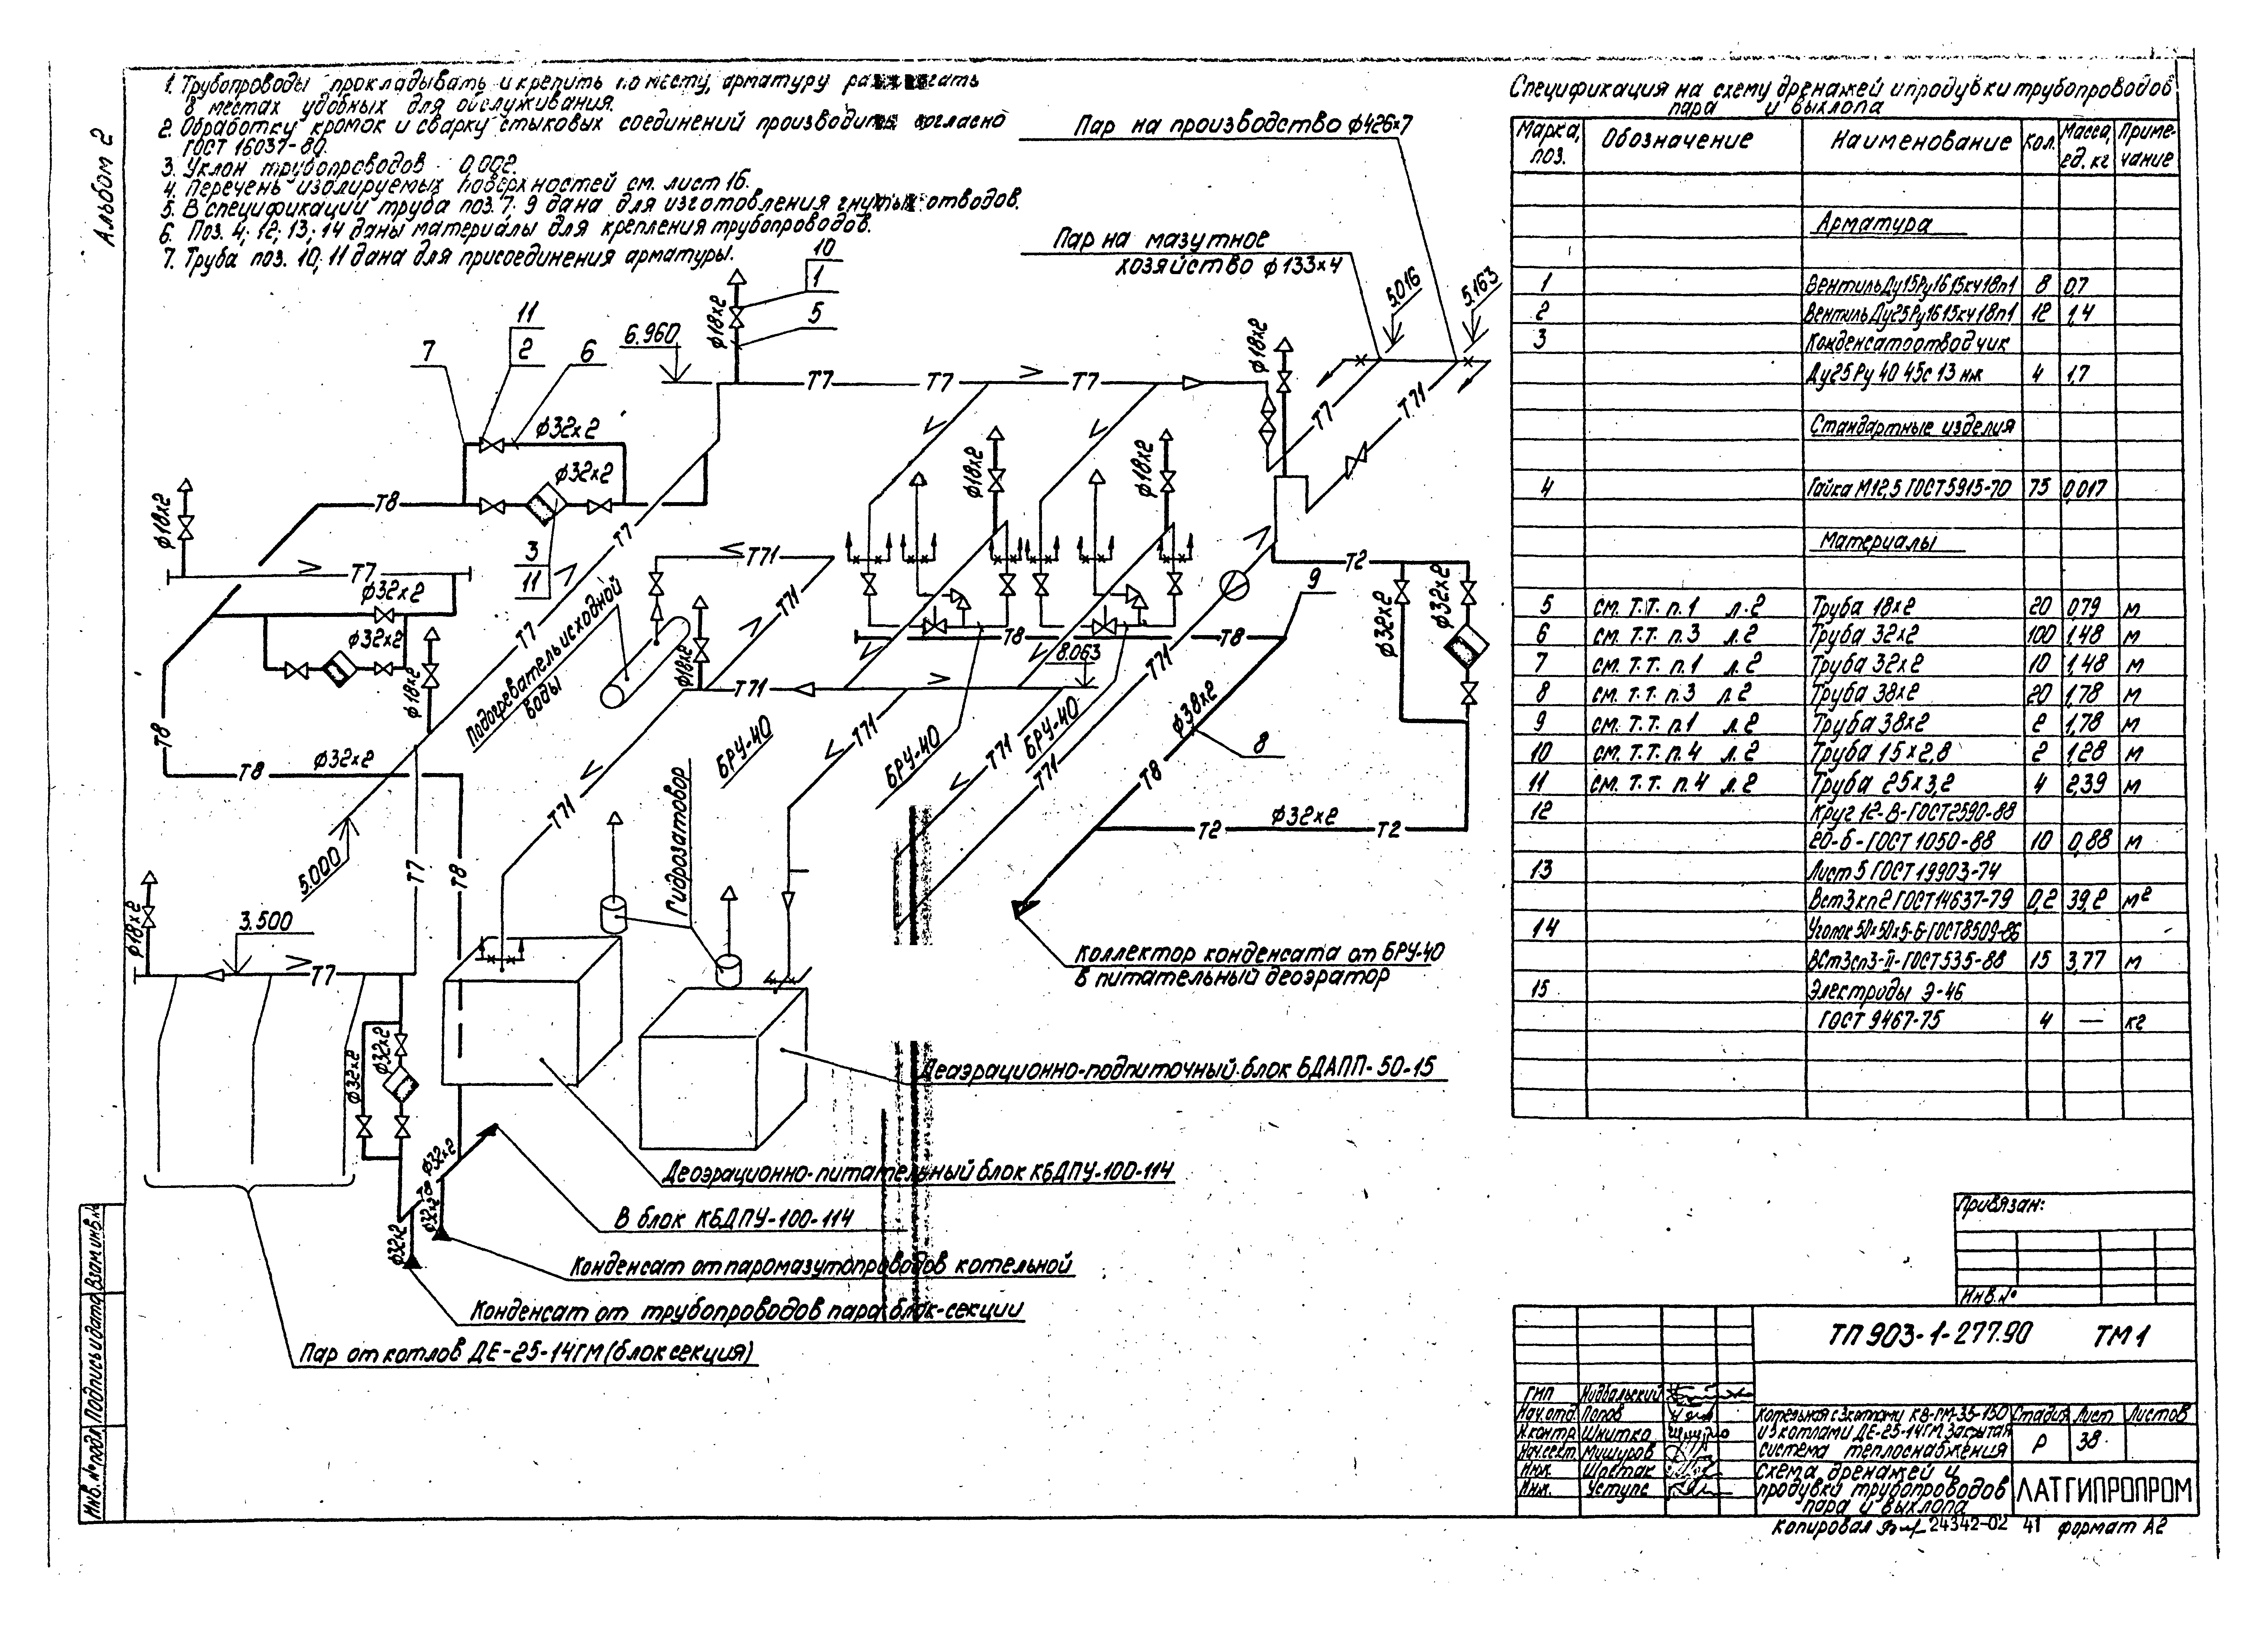 Альбом 2
1. Трубопроводы прокладывать и крепить по месту, арматуру располагать
в местах удобных для обслуживания.
2. Обработку кромок и сварку стыковых соединений производить согласно
ГОСТ 16037-80.
3. Уклон трубопроводов 0,002.
4. Перечень изолируемых поверхностей см. лист 16.
5. В спецификации труба поз. 7; 9 дана для изготовления гнутых отводов.
6. Поз. 4; 12; 13; 14 даны материалы для крепления трубопроводов.
7. Труба поз. 10; 11 дана для присоединения арматуры.
Пар на производство ф426×7
Пар на мазутное
хозяйство ф133×4
5.016
5.163
10
1
5
ф18×2
6.960
11
2
7
6
ф32×2
ф32×2
Т8
Т7
Т7
Т7
Т7
Т71
ф18×2
ф18×2
ф18×2
ф18×2
3
11
Т7
Т7
ф32×2
ф32×2
ф18×2
Т71
Т71
Т7
Подогреватель исходной
воды
ф18×2
Т71
8.063
Т8
Т8
Т71
Т2
9
ф32×2
ф32×2
Т8
Т8
ф32×2
БРУ-40
БРУ-40
БРУ-40
Т71
Т71
Т71
Т71
ф38×2
8
Т8
Т2
ф32×2
Т2
5.000
Т7
Т8
Гидрозатвор
ф18×2
3.500
Т7
Коллектор конденсата от БРУ-40
в питательный деаэратор
ф32×2
ф32×2
Деаэрационно-подпиточный блок БДАПП-50-15
Деаэрационно-питательный блок КБДПУ-100-114
ф32×2
Т8
ф32×2
ф32×2
В блок КБДПУ-100-114
Конденсат от паромазутопроводов котельной
Конденсат от трубопроводов пара блок-секции
Пар от котлов ДЕ-25-14ГМ (блок секция)
Спецификация на схему дренажей и продувки трубопроводов
пара и выхлопа
Марка, поз. Обозначение Наименование Кол. Масса, ед. кг Примечание
Арматура
1 Вентиль Ду15Ру16 15кч18п1 8 0,7
2 Вентиль Ду25Ру16 15кч18п1 12 1,4
3 Конденсатоотводчик
Ду25 Ру 40 45с 13 нж 4 1,7
Стандартные изделия
4 Гайка М12,5 ГОСТ 5915-70 75 0,017
Материалы
5 см. т.т. п.1 л.2 Труба 18×2 20 0,79 м
6 см. т.т. п.3 л.2 Труба 32×2 100 1,48 м
7 см. т.т. п.1 л.2 Труба 32×2 10 1,48 м
8 см. т.т. п.3 л.2 Труба 38×2 20 1,78 м
9 см. т.т. п.1 л.2 Труба 38×2 2 1,78 м
10 см. т.т. п.4 л.2 Труба 15×2,8 2 1,28 м
11 см. т.т. п.4 л.2 Труба 25×3,2 4 2,39 м
12 Круг 12-В-ГОСТ2590-88
20-б-ГОСТ 1050-88 10 0,88 м
13 Лист 5 ГОСТ 19903-74
Вст3кп2 ГОСТ14637-79 0,2 39,2 м²
14 Уголок 50×50×5-Б-ГОСТ8509-86
ВСт3сп3-II-ГОСТ535-88 15 3,77 м
15 Электроды Э-46
ГОСТ 9467-75 4 — кг
Привязан:
Инв.№
ТП 903-1-277.90 ТМ1
ГИП Нидбальский
Нач.отд. Попов
Н.контр. Шнитко
Нач.сект. Мишуров
Инж. Шостак
Инж. Уступс
Котельная с 3 котлами КВ-ГМ-35-150
и 3 котлами ДЕ-25-14ГМ. Закрытая
система теплоснабжения
Стадия Лист Листов
Р 38
Схема дренажей и
продувки трубопроводов
пара и выхлопа
ЛАТГИПРОПРОМ
Копировал 24342-02 41 формат А2
Взам.инв.№
Подпись и дата
Инв.№ подл.